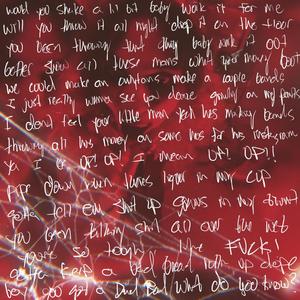 would you shake a lil bit baby work it for me
will you throw it all night drop it on the floor
you been throwing that thang baby work it out
better show all these mans what your money bout
we could make an outtans make a couple bands
I just really wanna see you dance on my pants
I dont feel your little man yeah hes makeing bands
throwing all his money on some hos for his instagram
ya I be UP! UP! I mean UH! UP!!
pipe down when James liquor in my cup
gotta tell em shut up guns in my
you been talking shit all over the net
you're so tough like FUCK!
gotta keep a bad bread up dope
boy you got a Dad Bod what do you know?